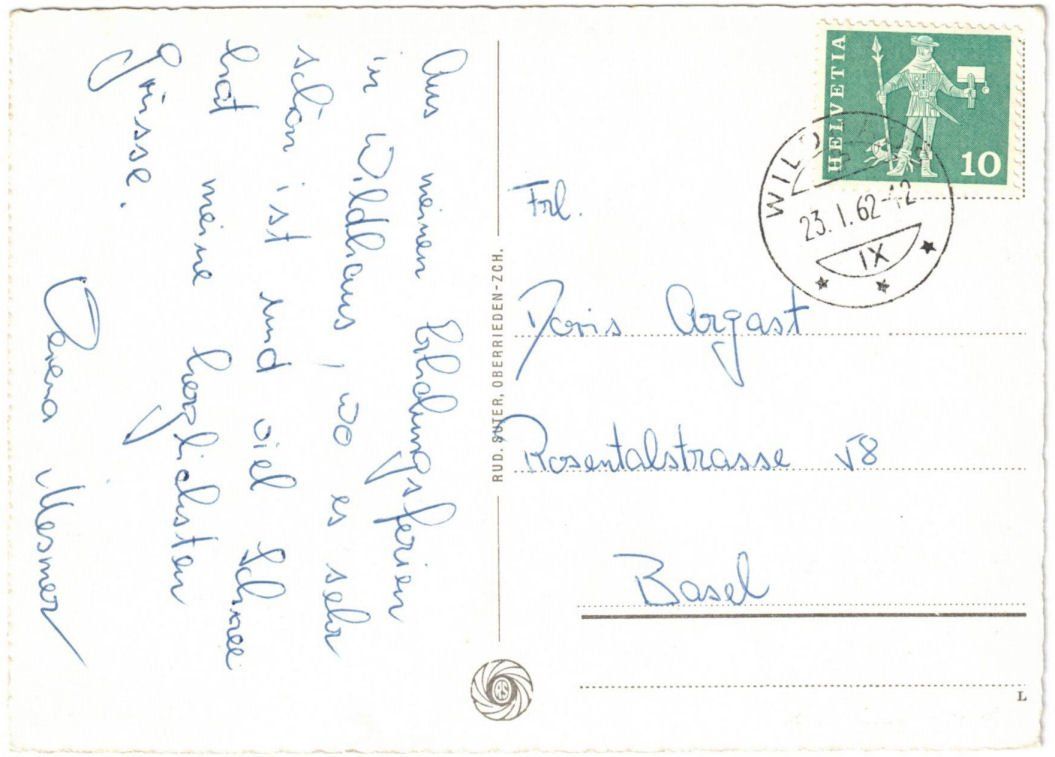 Aus meinen Erholungsferien
in Wildhaus, wo es sehr
schön ist und viel Schnee
hat meine herzlichsten
Grüsse.
Verena Mesmer
RUD. SUTER, OBERRIEDEN-ZCH.
HELVETIA
10
WILDHAUS
23.1.62-12
IX
Frl.
Doris Argast
Rosentalstrasse 58
Basel
L